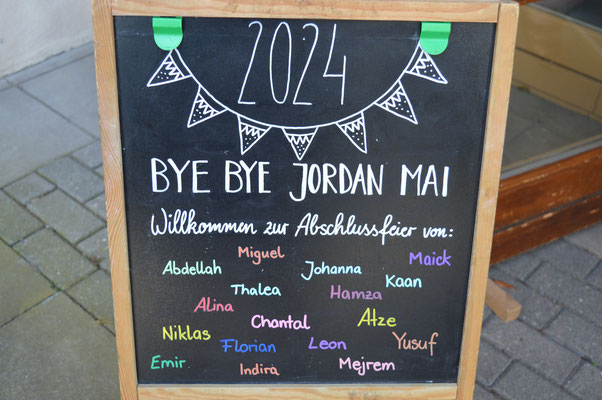 2024
BYE BYE JORDAN MAI
Willkommen zur Abschlussfeier von:
Miguel Maick
Abdellah Johanna Kaan
Thalea Hamza
Alina Chantal Atze
Niklas Florian Leon Yusuf
Emir Indira Mejrem